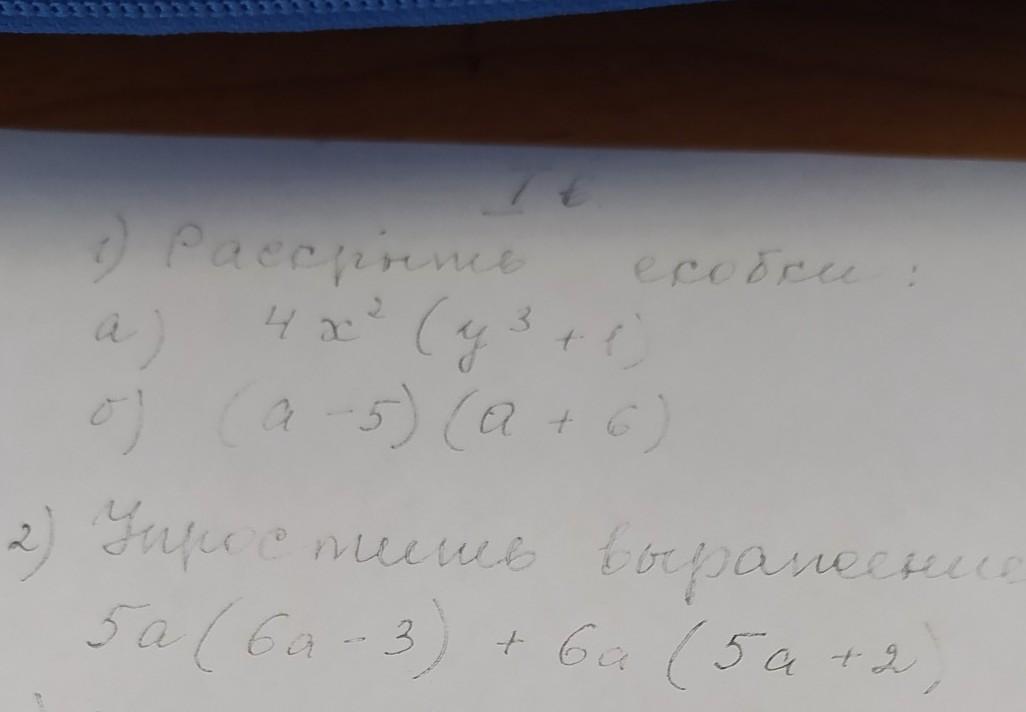 I в.
1) Раскрыть скобки:
а) 4x² (y³ + 1)
б) (a - 5) (a + 6)
2) Упростить выражение
5a (6a - 3) + 6a (5a + 2)